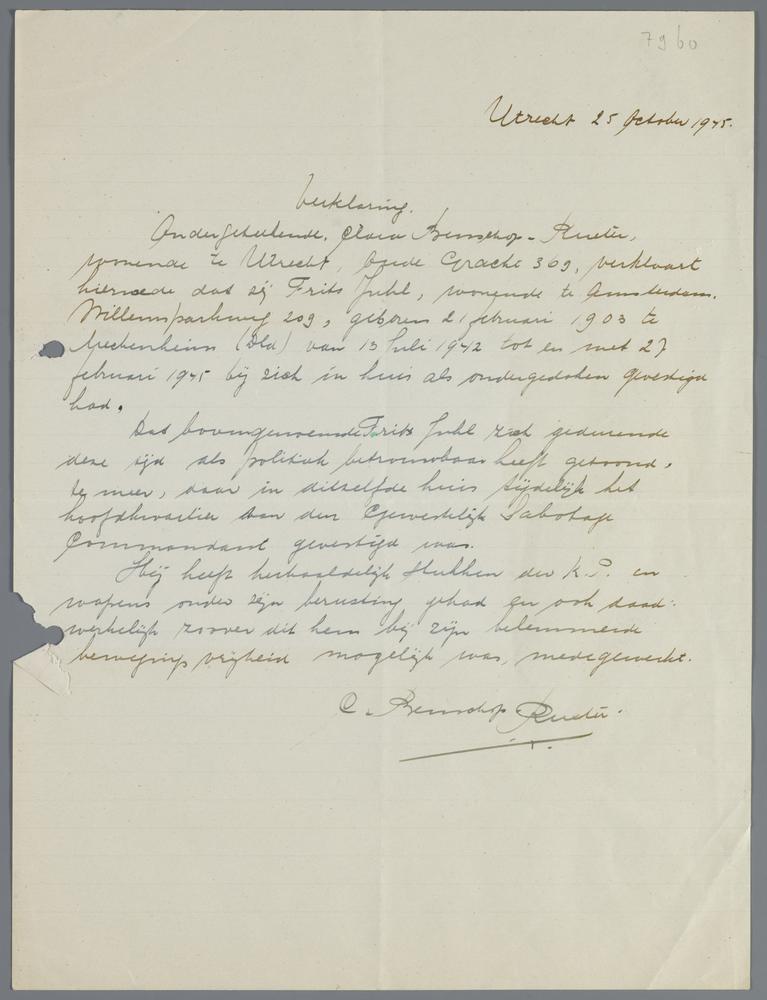 7960
Utrecht 25 October 1945.
Verklaring.
Ondergetekende, Clara Benschop-Rueter,
wonende te Utrecht, Oude Gracht 369, verklaart
hiermede dat zij Frits Juhl, wonende te Amsterdam.
Willemsparkweg 209, geboren 21 februari 1903 te
Meckenheim (Dld) van 13 Juli 1942 tot en met 27
februari 1945 bij zich in huis als ondergedoken gevestigd
had.
Dat bovengenoemde Frits Juhl zich gedurende
deze tijd als politiek betrouwbaar heeft getoond,
te meer, daar in ditzelfde huis tijdelijk het
hoofdkwartier van den Gewestelijk Sabotage
Commandant gevestigd was.
Hij heeft herhaaldelijk stukken der K.P. en
wapens onder zijn berusting gehad en ook daad-
werkelijk zoover dit hem bij zijn belemmerde
bewegings vrijheid mogelijk was, medegewerkt.
C. Benschop-Rueter.